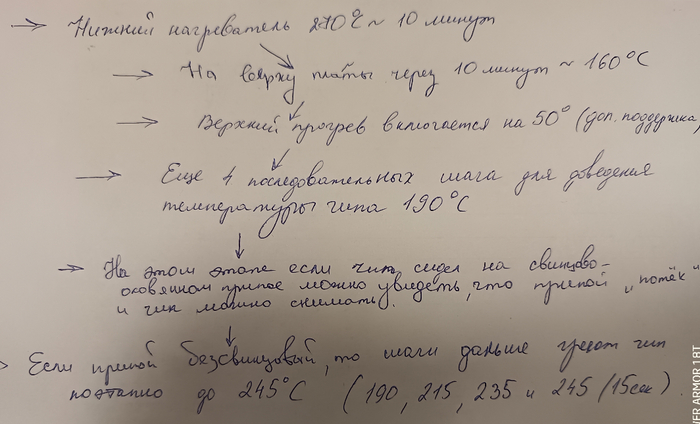 → Нижний нагреватель 270°C ~ 10 минут
→ На вверху платы через 10 минут ~ 160°C
→ Верхний прогрев включается на 50° (доп. поддержка
→ Еще 4 последовательных шага для доведения
температуры чипа 190°C
→ На этом этапе если чип сидел на свинцово-
оловянном припое можно увидеть, что припой "потёк"
и чип можно снимать.
Если припой безсвинцовый, то шаги дальше греют чип
поэтапно до 245°C (190, 215, 235 и 245 (15сек)
ER ARMOR 18T